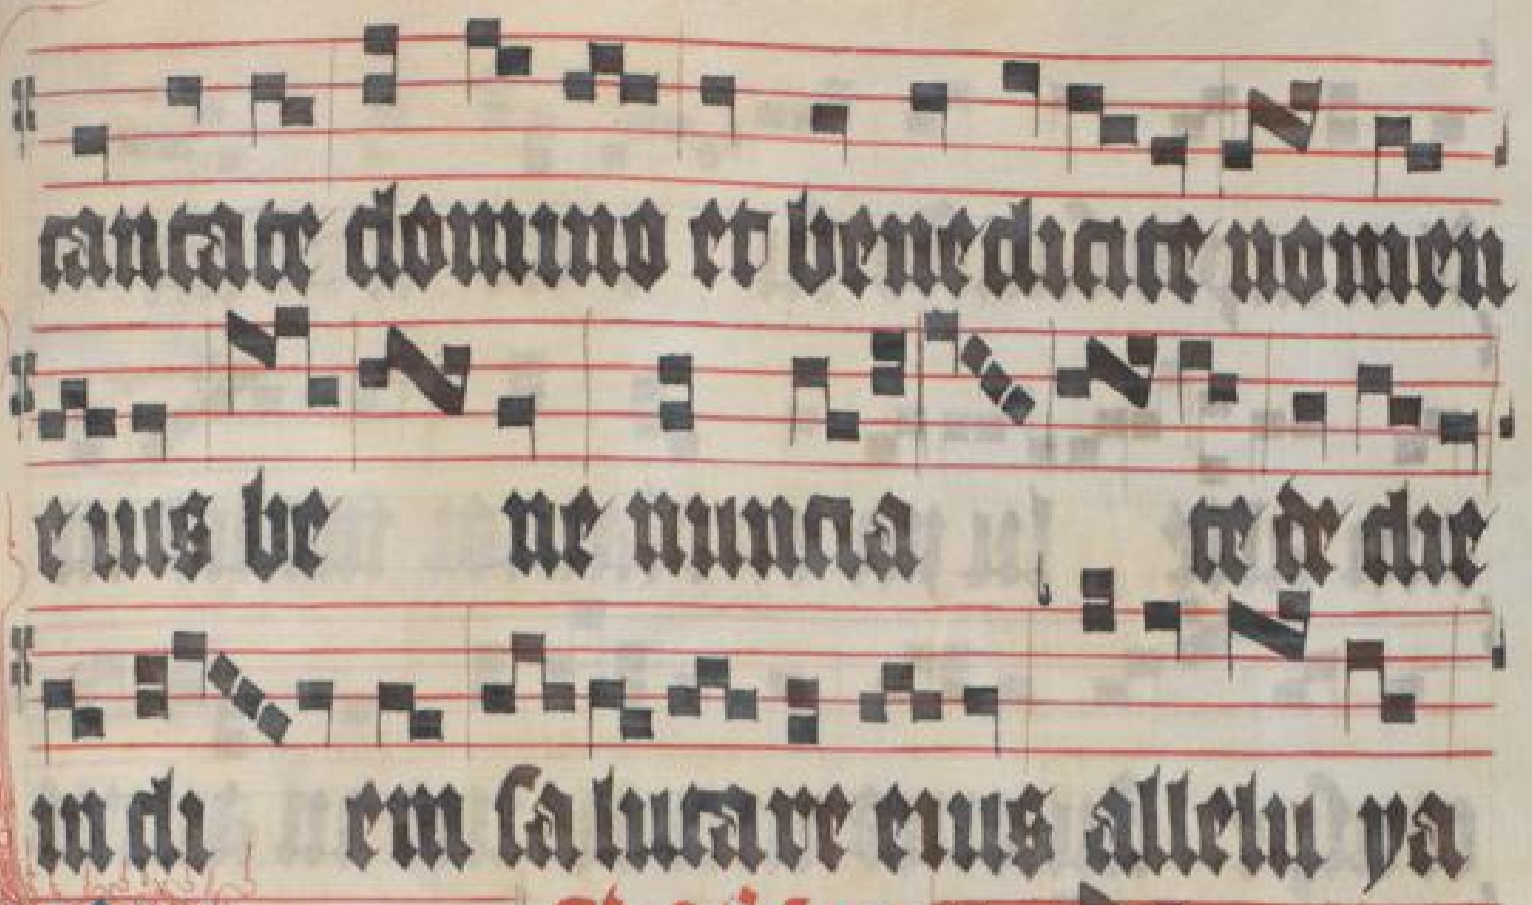 cantate domino et benedicite nomen
eius be ne nuncia te de die
in di em salutare eius allelu ya